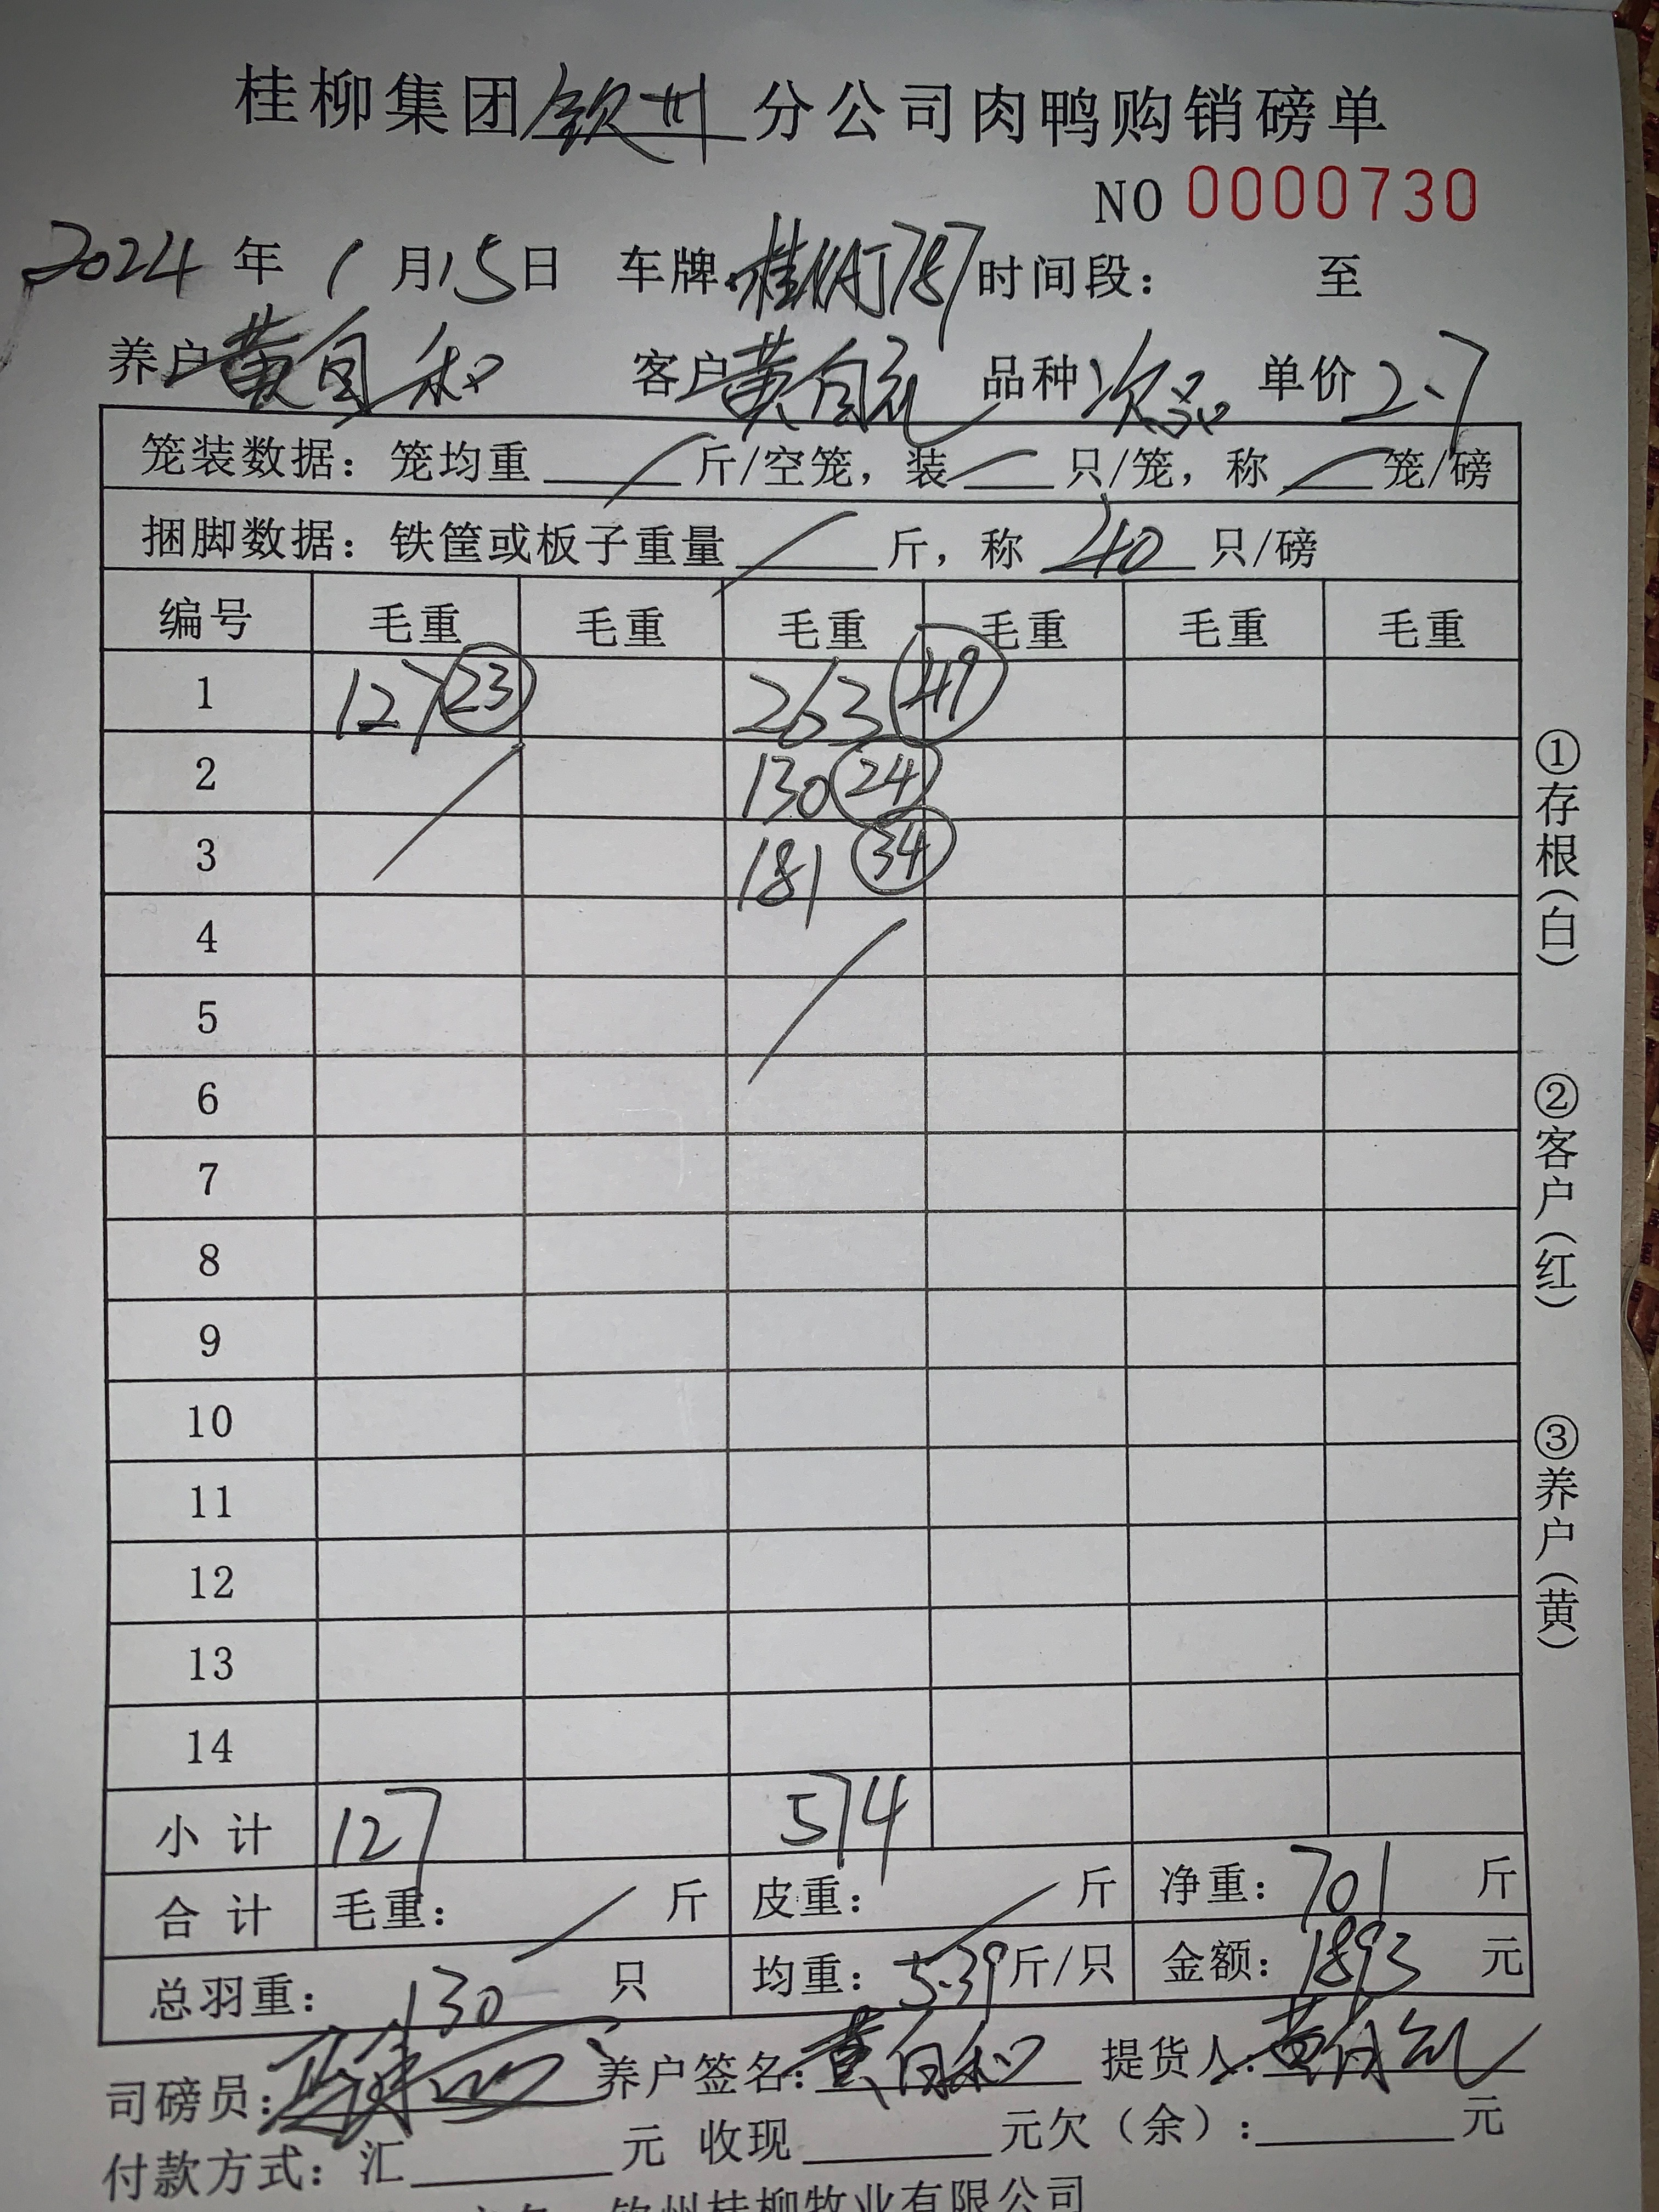 桂柳集团钦州分公司肉鸭购销磅单
NO 0000730
2024年1月15日 车牌: 787 时间段: 至
养户黄自和 客户黄自礼 品种次品 单价2.7
笼装数据: 笼均重 斤/空笼, 装 只/笼, 称 笼/磅
捆脚数据: 铁筐或板子重量 斤, 称 40 只/磅
编号 毛重 毛重 毛重 毛重 毛重 毛重
1 127 23 263 49
2 130 24
3 181 34
4
5
6
7
8
9
10
11
12
13
14
小计 127 574
合计 毛重: 斤 皮重: 斤 净重: 701 斤
总羽重: 130 只 均重: 5.39斤/只 金额: 1893 元
司磅员: 养户签名: 黄自和 提货人: 黄自礼
付款方式: 汇 元 收现 元欠(余): 元
钦州桂柳牧业有限公司
①存根(白)
②客户(红)
③养户(黄)